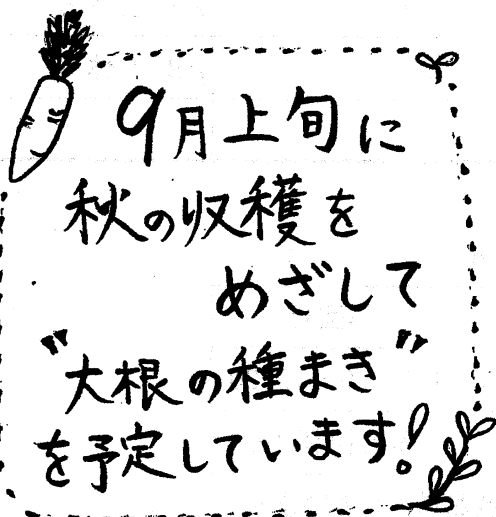 9月上旬に
秋の収穫を
めざして
"大根の種まき"
を予定しています!